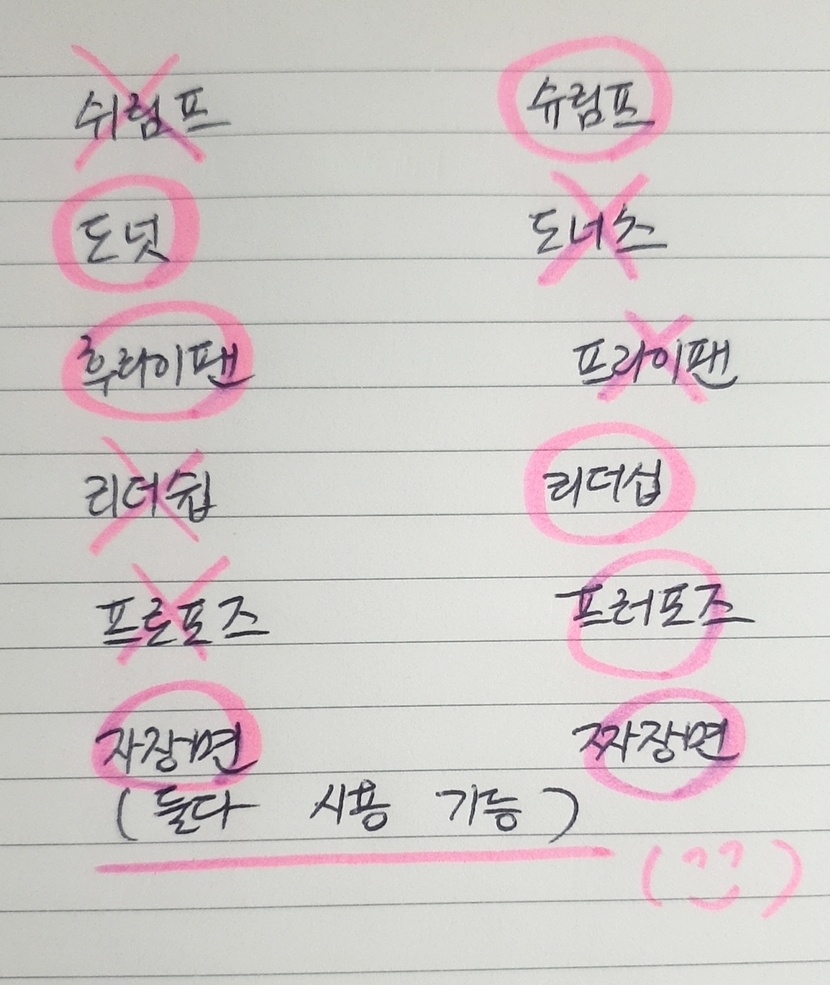 쉬림프 슈림프
도넛 도너츠
후라이팬 프라이팬
리더쉽 리더십
프로포즈 프러포즈
자장면 짜장면
(둘다 사용 가능)